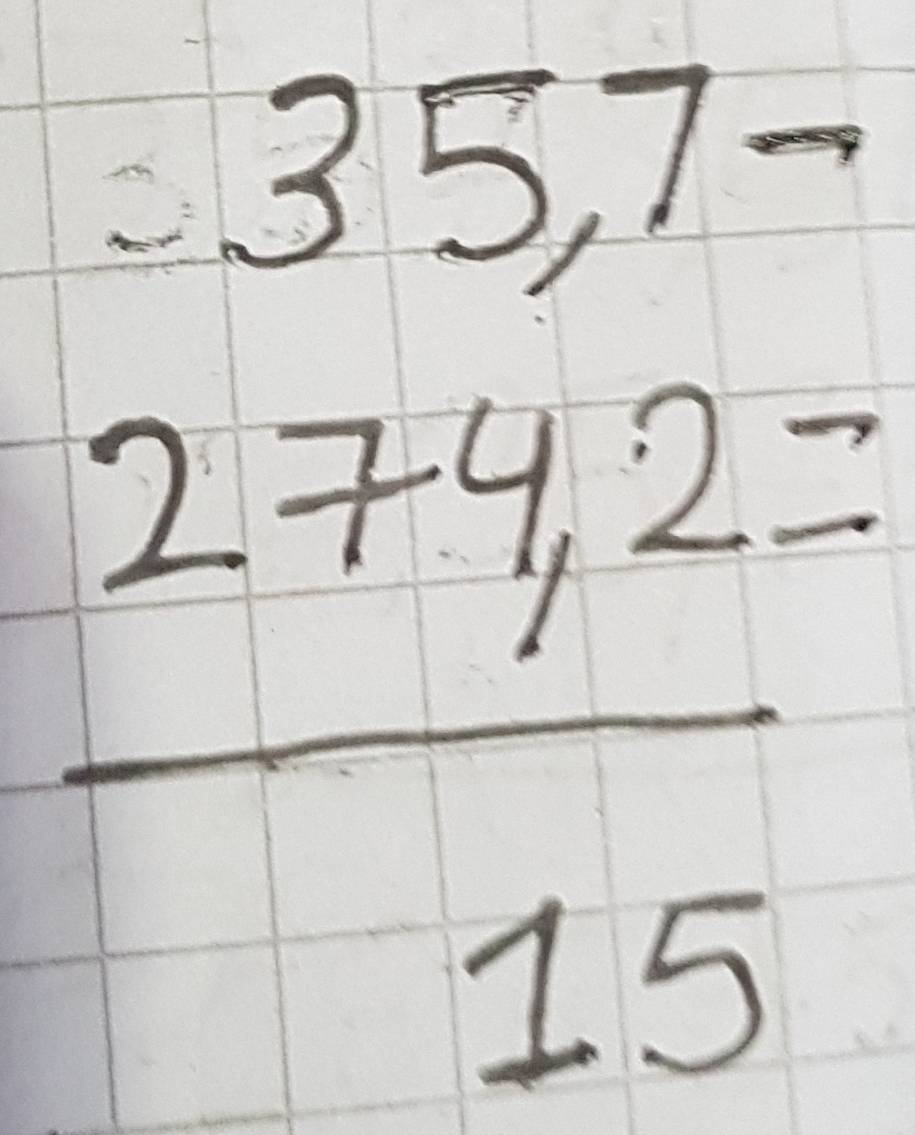 35,7-
274,2=
15